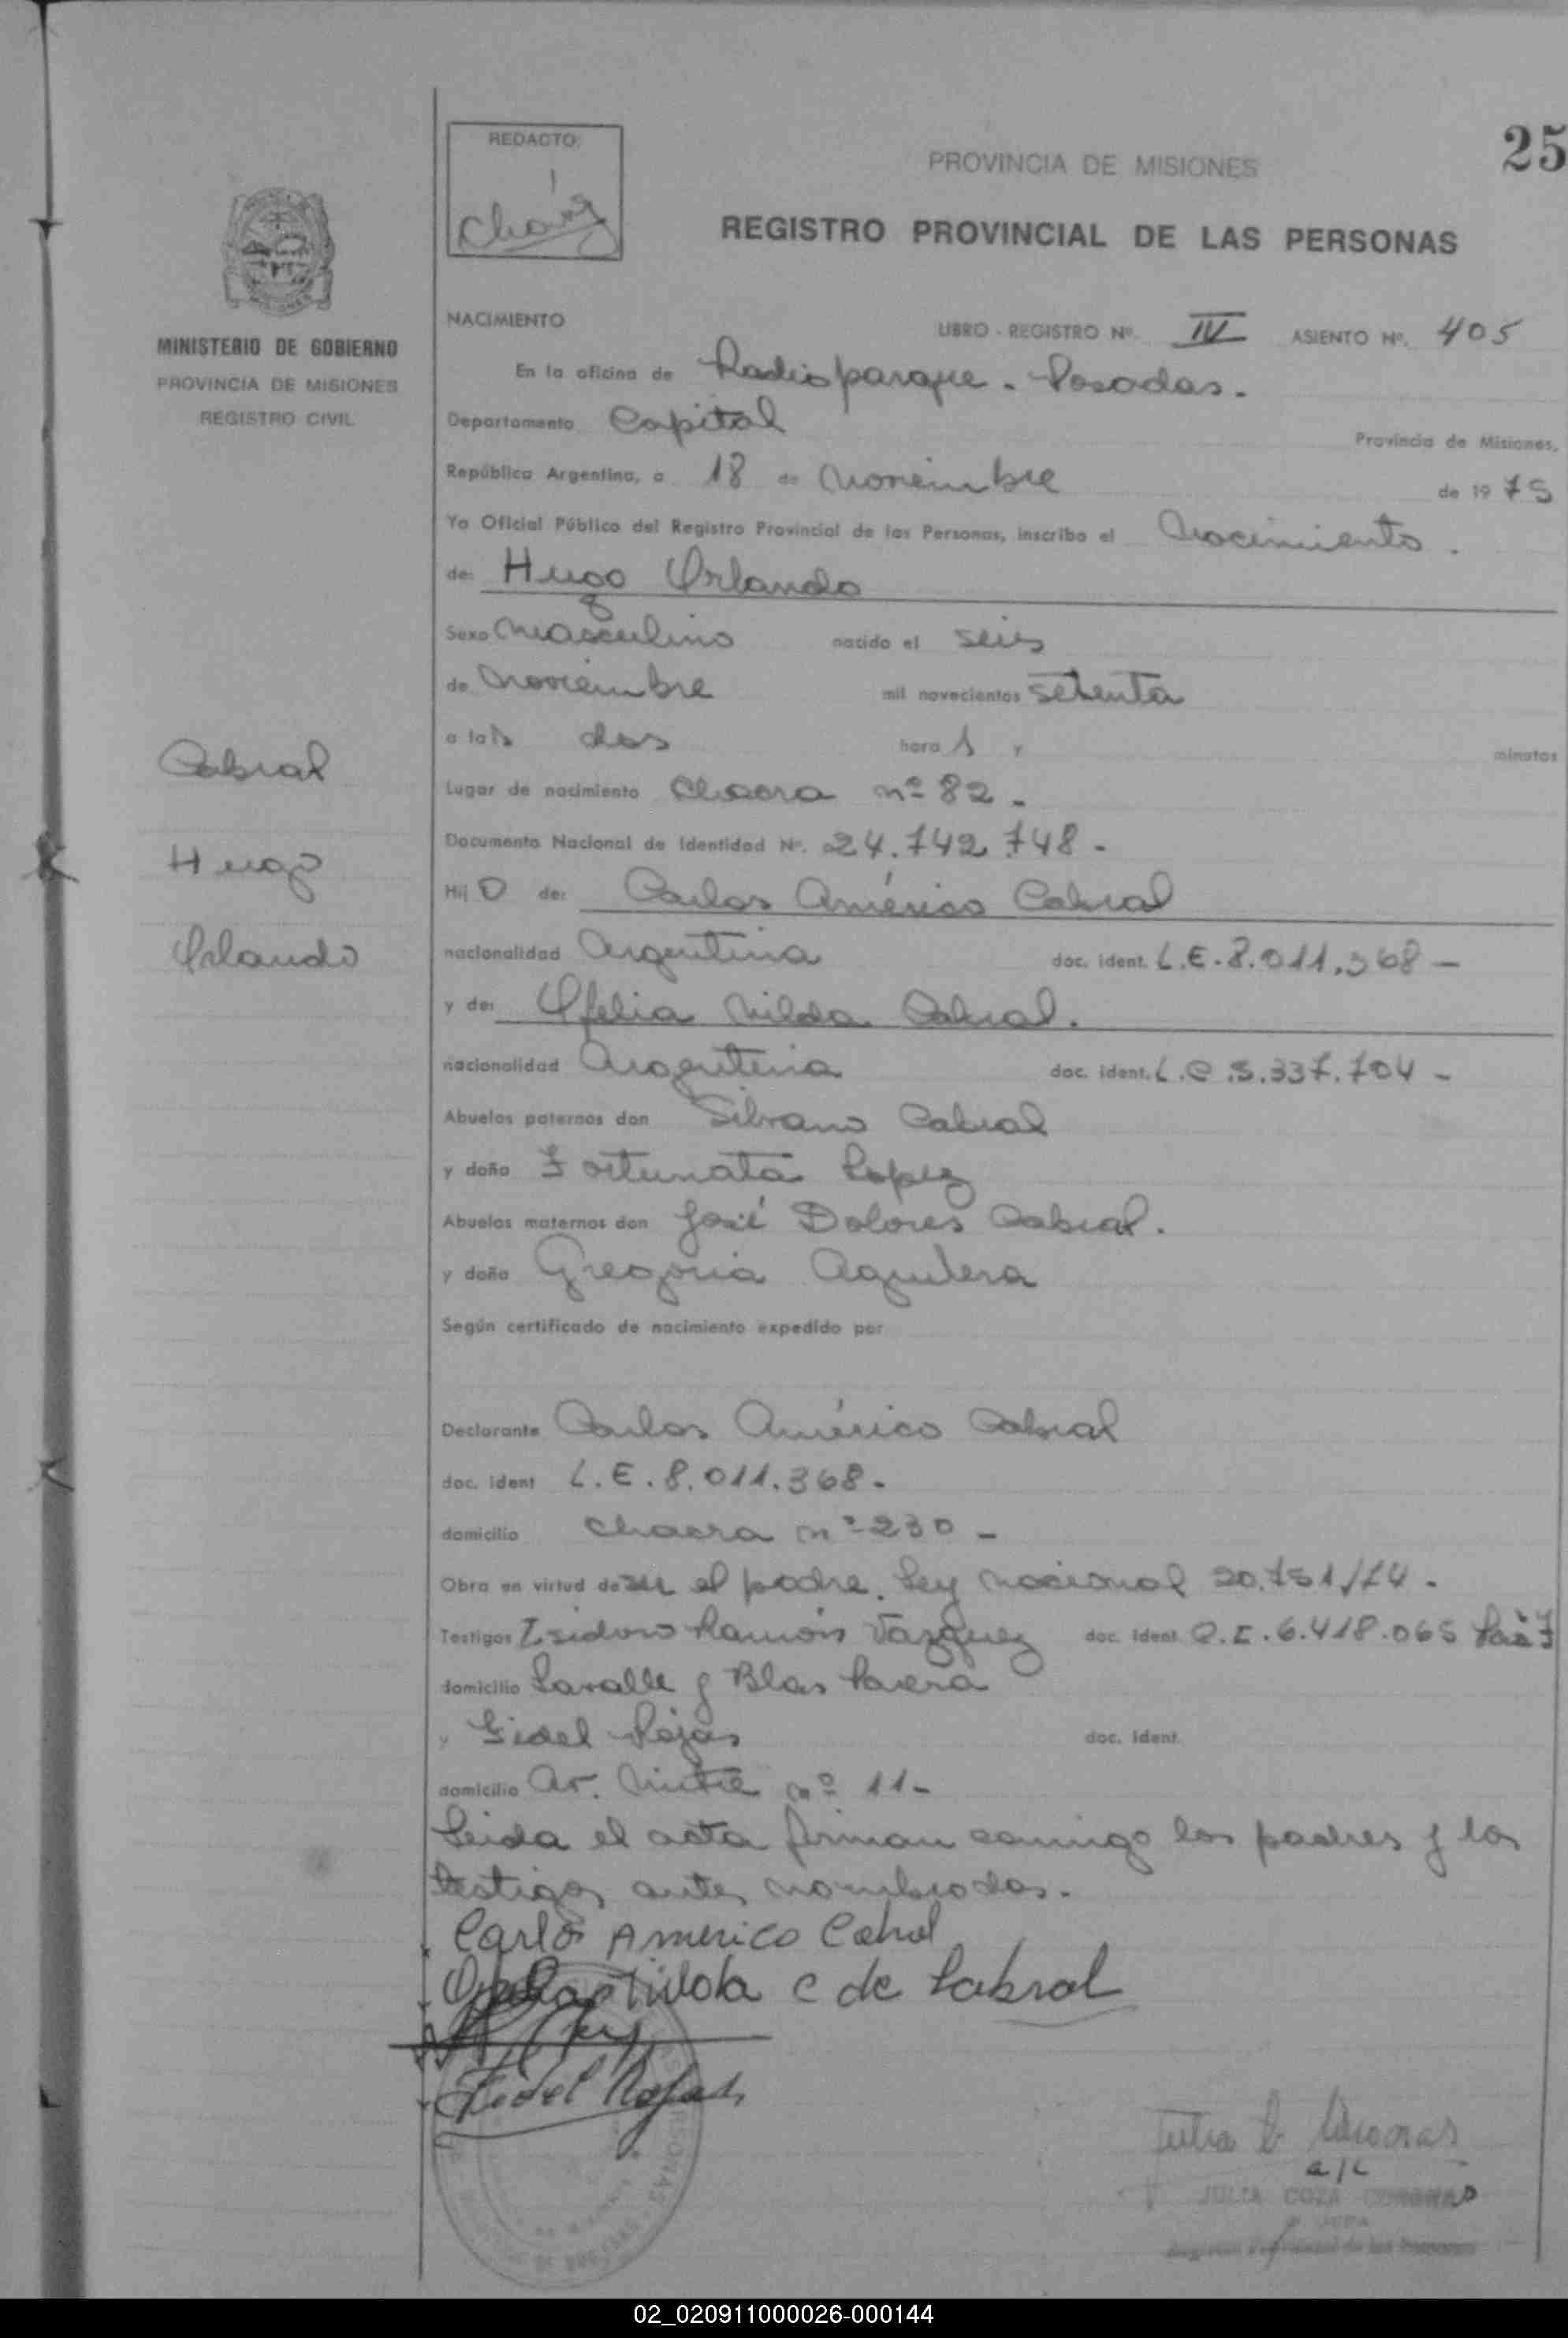 25
REDACTO:
PROVINCIA DE MISIONES
REGISTRO PROVINCIAL DE LAS PERSONAS
MINISTERIO DE GOBIERNO
PROVINCIA DE MISIONES
REGISTRO CIVIL
NACIMIENTO
LIBRO - REGISTRO Nº. IV ASIENTO Nº. 405
En la oficina de Radioparque - Posadas.
Departamento Capital Provincia de Misiones,
República Argentina, a 18 de Noviembre de 1975
Yo Oficial Público del Registro Provincial de las Personas, inscribo el Nacimiento.
de: Hugo Orlando
Sexo Masculino nacido el seis
de Noviembre mil novecientos setenta
a las dos hora s y minutos
Lugar de nacimiento Chacra nº 82 -
Documento Nacional de Identidad Nº. 24.742.748 -
Hijo de: Carlos Américo Cabral
nacionalidad Argentina doc. ident. L.E. 8.011.368 -
y de: Ofelia Nilda Cabral.
nacionalidad Argentina doc. ident. L.C. 5.337.704 -
Abuelos paternos don Silvano Cabral
y doña Fortunata Lopez
Abuelos maternos don José Dolores Cabral.
y doña Gregoria Aguilera
Según certificado de nacimiento expedido por
Declarante Carlos Américo Cabral
doc. ident L.E. 8.011.368 -
domicilio Chacra nº 230 -
Obra en virtud de ser el padre. Ley Nacional 20.751/74 -
Testigos Isidoro Ramón Vazquez doc. ident. C.I. 6.418.065
domicilio Lavalle y Blas Parera
y Fidel Rojas doc. ident.
domicilio Av. Mitre nº 11 -
Leida el acta firman conmigo los padres y los
testigos antes nombrados.
Carlos Americo Cabral
Ofelia Nilda C de Cabral
Fidel Rojas
a/c
JULIA COZA
Registro Provincial de las Personas
Cabral
Hugo
Orlando
02_020911000026-000144